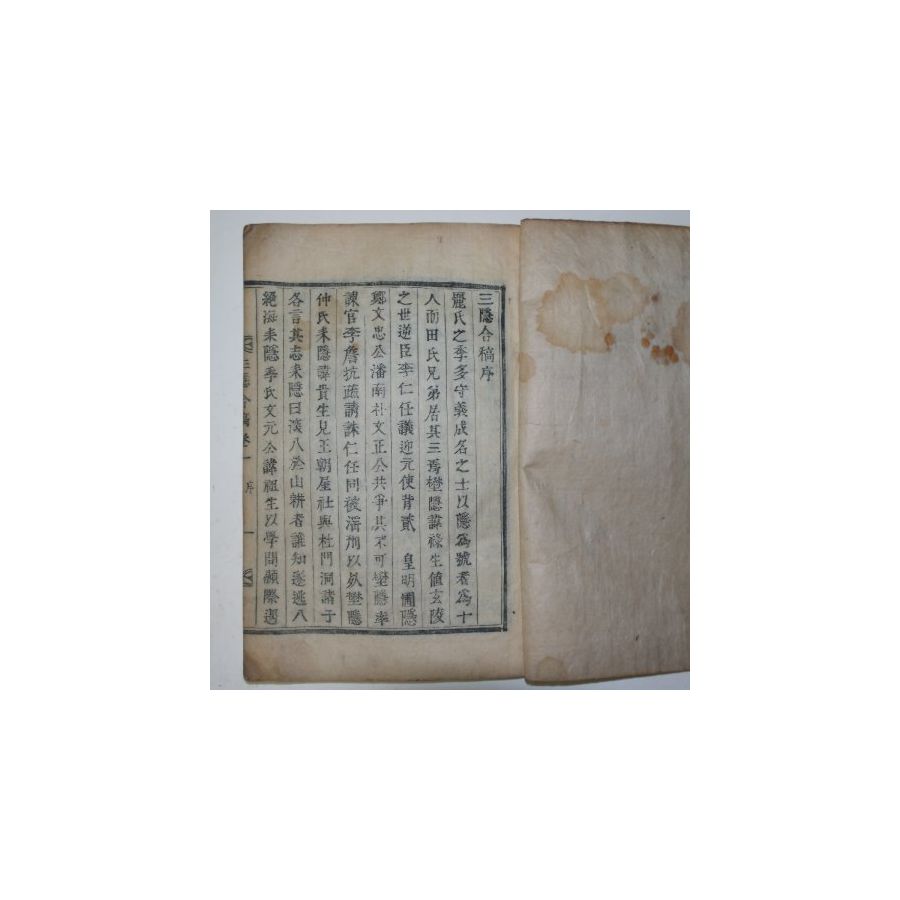 三隱合稿序
麗氏之季多守義成名之士以隱爲號者爲十
人而田氏兄弟居其三焉壄隱諱祿生値玄陵
之世逆臣李仁任議迎元使背貳 皇明圃隱
鄭文忠公潘南朴文正公共爭其不可壄隱率
諫官李詹抗疏請誅仁任同被濟刑以死壄隱
仲氏耒隱諱貴生見王朝屋社與杜門洞諸子
各言其志耒隱曰深入於山耕者誰知遂逃入
絶海耒隱季氏文元公諱祖生以學問
三隱合稿卷一 序 一